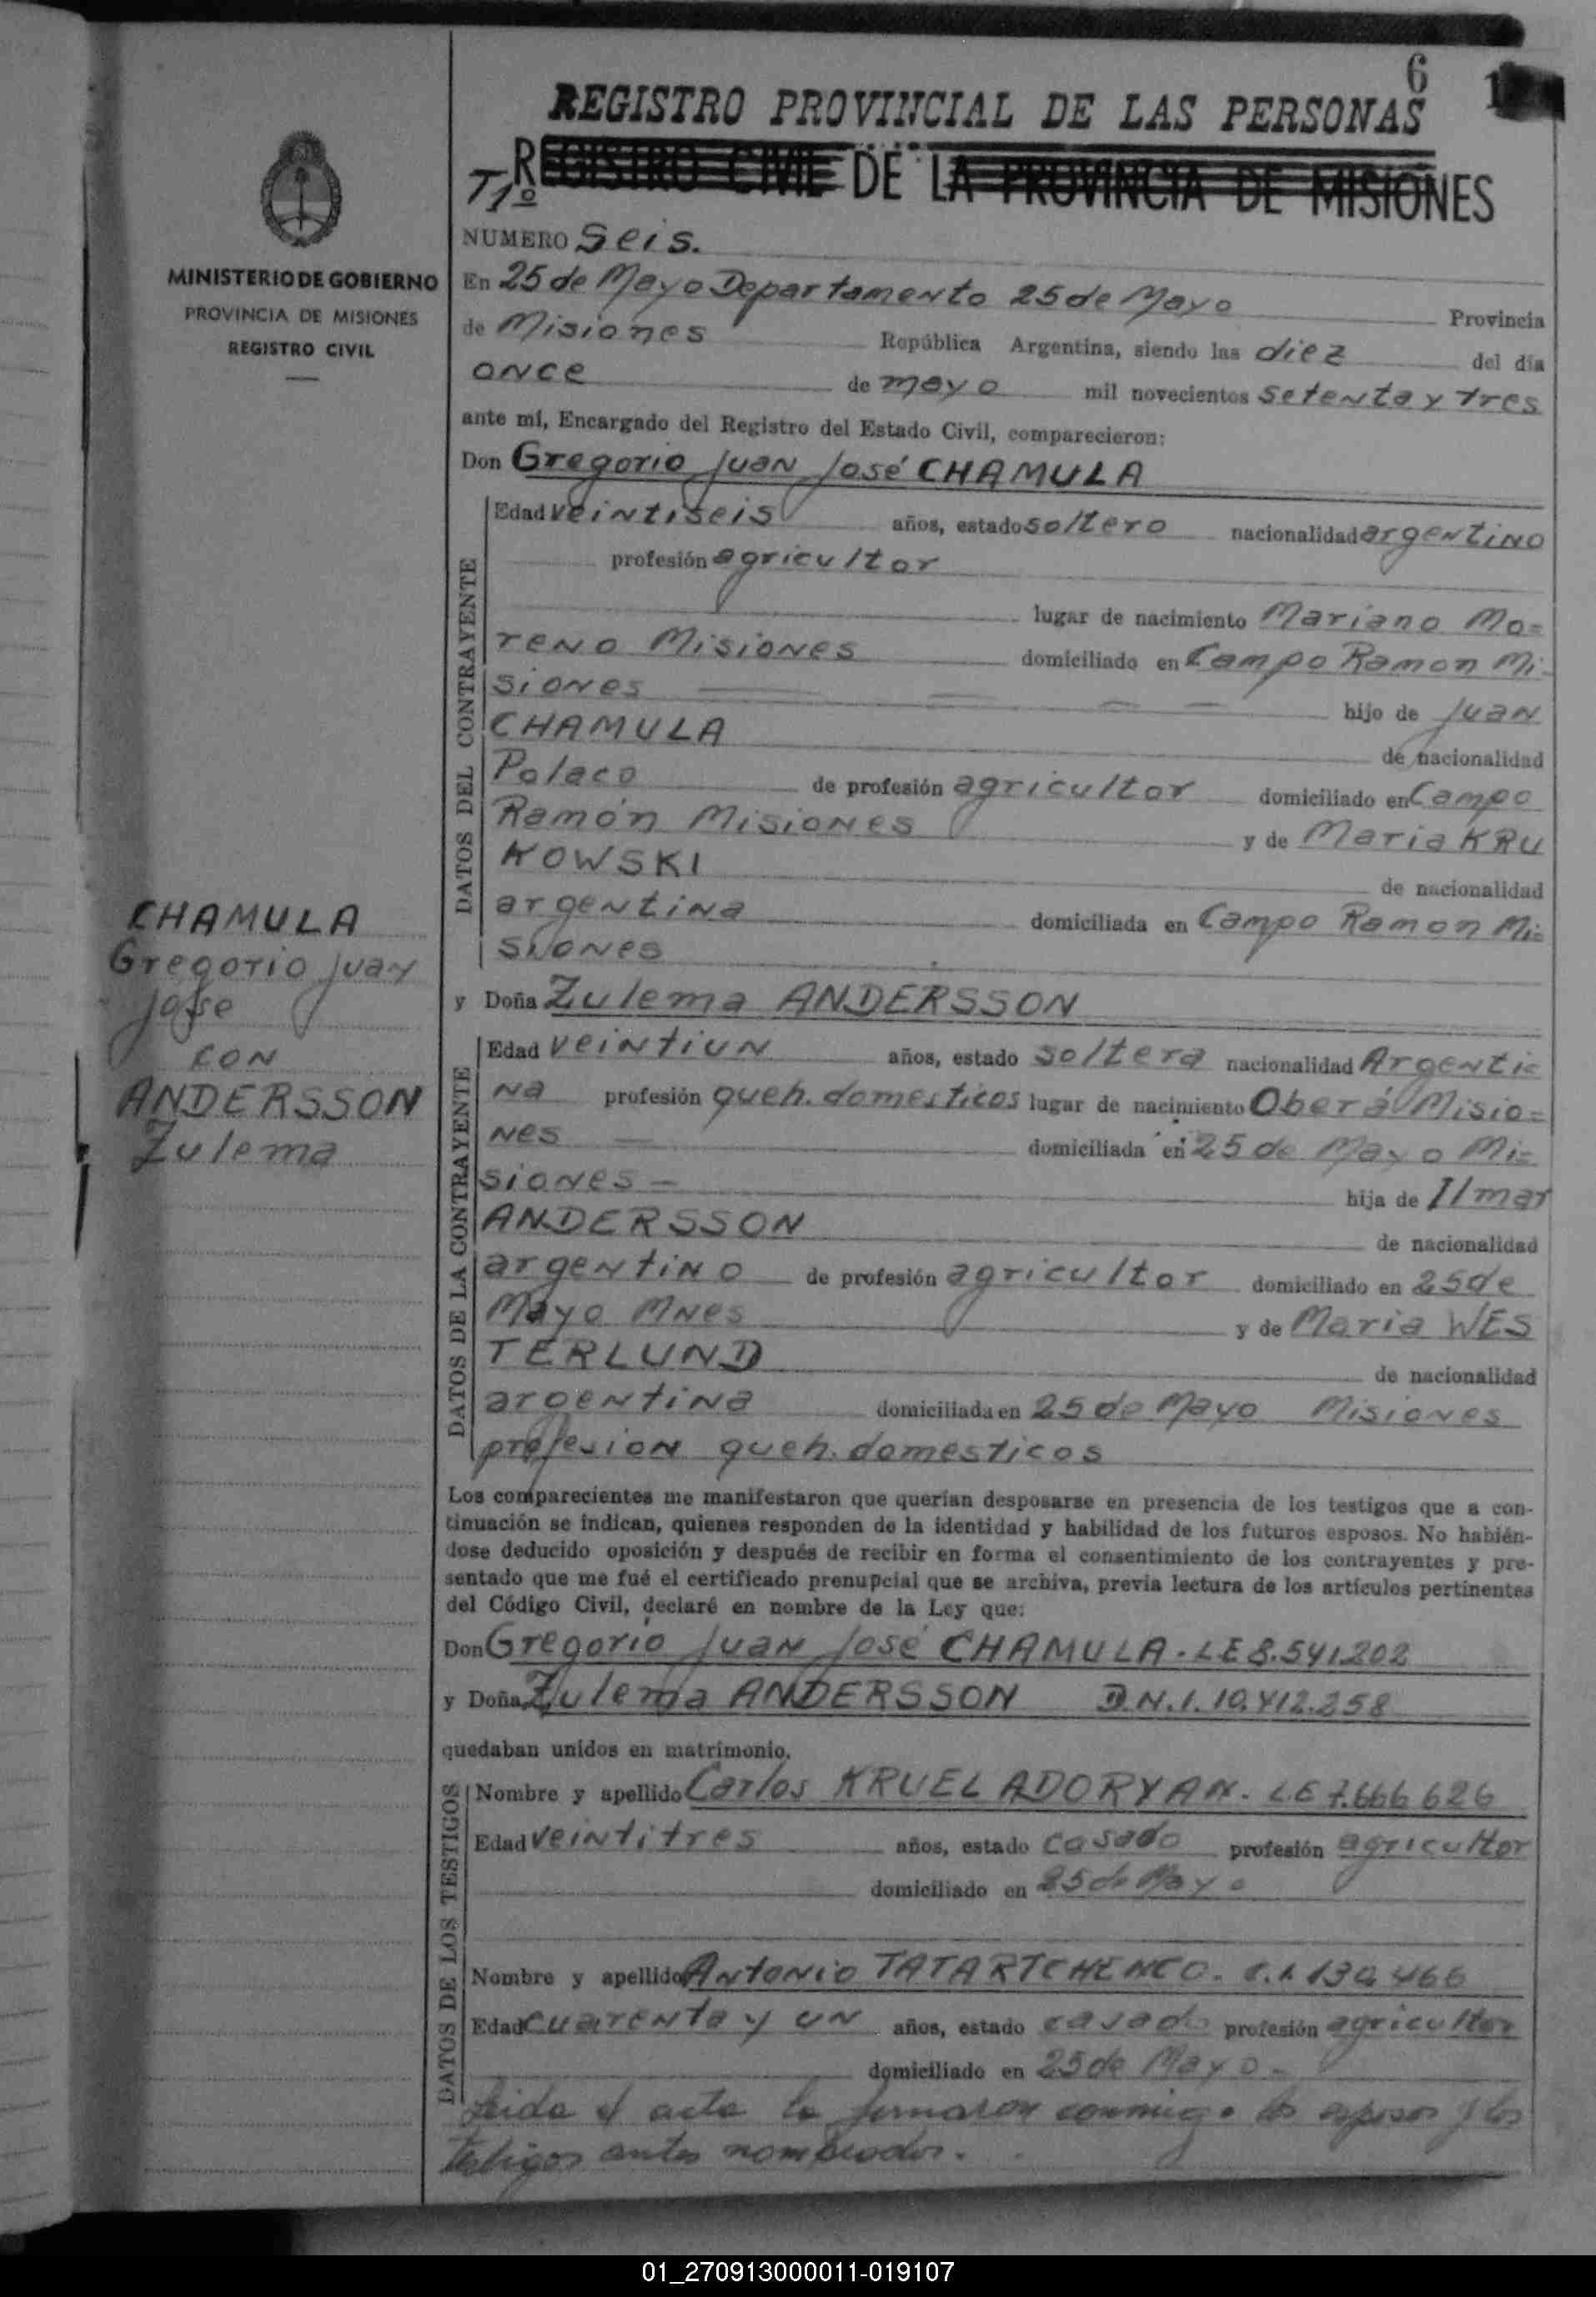 6
REGISTRO PROVINCIAL DE LAS PERSONAS
REGISTRO CIVIL DE LA PROVINCIA DE MISIONES
T1º
MINISTERIO DE GOBIERNO
PROVINCIA DE MISIONES
REGISTRO CIVIL
CHAMULA
Gregorio Juan
José
CON
ANDERSSON
Zulema
NUMERO Seis.
En 25 de Mayo Departamento 25 de Mayo Provincia
de Misiones República Argentina, siendo las diez del día
once de mayo mil novecientos setenta y tres
ante mí, Encargado del Registro del Estado Civil, comparecieron:
Don Gregorio Juan José CHAMULA
DATOS DEL CONTRAYENTE
Edad veintiseis años, estado soltero nacionalidad argentino
profesión agricultor
lugar de nacimiento Mariano Mo=
reno Misiones domiciliado en Campo Ramon Mi-
siones hijo de Juan
CHAMULA de nacionalidad
Polaco de profesión agricultor domiciliado en Campo
Ramón Misiones y de Maria KRU
KOWSKI de nacionalidad
argentina domiciliada en Campo Ramon Mi=
siones
y Doña Zulema ANDERSSON
DATOS DE LA CONTRAYENTE
Edad veintiun años, estado soltera nacionalidad Argenti=
na profesión queh. domesticos lugar de nacimiento Oberá Misio=
nes — domiciliada en 25 de Mayo Mi=
siones — hija de Ilmar
ANDERSSON de nacionalidad
argentino de profesión agricultor domiciliado en 25 de
Mayo Mnes y de Maria WES
TERLUND de nacionalidad
argentina domiciliada en 25 de Mayo Misiones
profesion queh. domesticos
Los comparecientes me manifestaron que querían desposarse en presencia de los testigos que a con-
tinuación se indican, quienes responden de la identidad y habilidad de los futuros esposos. No habién-
dose deducido oposición y después de recibir en forma el consentimiento de los contrayentes y pre-
sentado que me fué el certificado prenupcial que se archiva, previa lectura de los artículos pertinentes
del Código Civil, declaré en nombre de la Ley que:
Don Gregorio Juan José CHAMULA. LE 8.541.202
y Doña Zulema ANDERSSON D.N.I. 10.412.258
quedaban unidos en matrimonio.
DATOS DE LOS TESTIGOS
Nombre y apellido Carlos KRUEL ADORYAN. LE 7.666 626
Edad veintitres años, estado casado profesión agricultor
domiciliado en 25 de Mayo
Nombre y apellido Antonio TATARTCHENCO. C.I. 130.466
Edad cuarenta y un años, estado casado profesión agricultor
domiciliado en 25 de Mayo-
Leida el acta la firmaron conmigo los esposos y los
testigos antes nombrados.
01_270913000011-019107